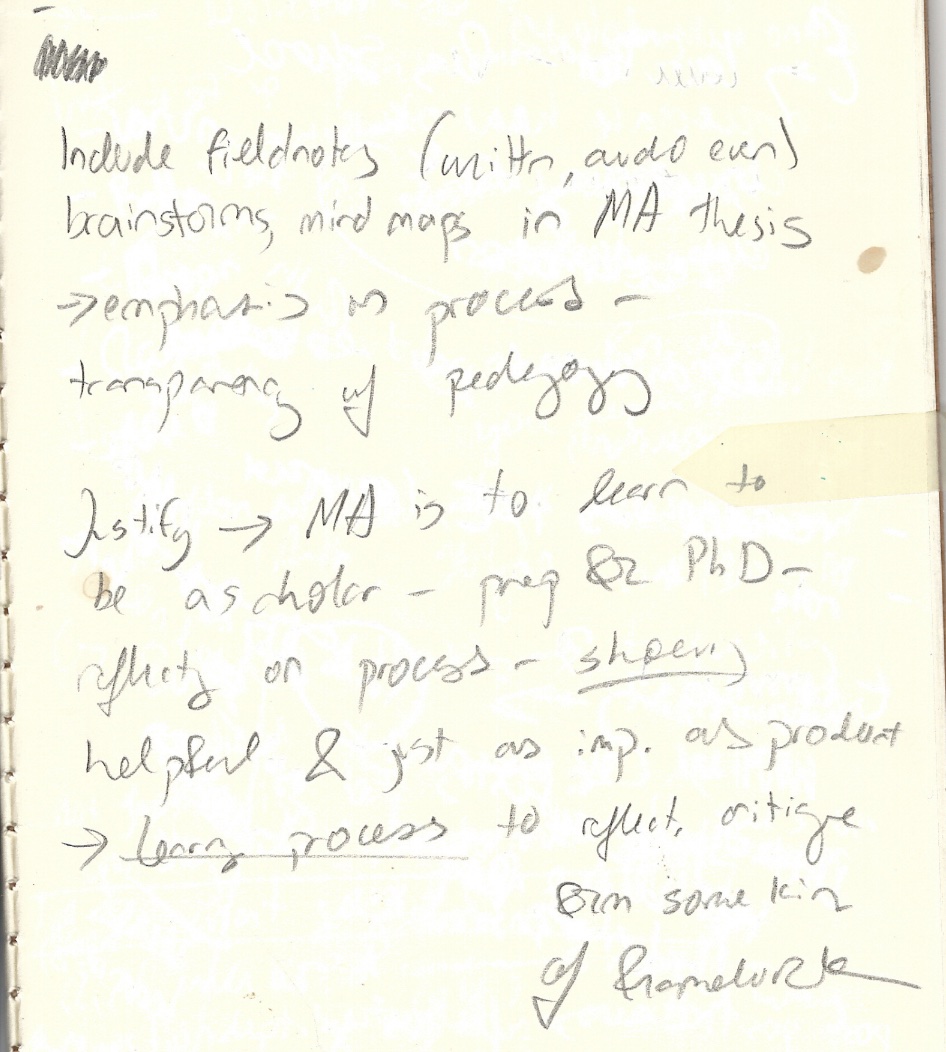 Include fieldnotes (writtn, audo even)
brainstorms, mind maps in MA thesis
→ emphasis in process -
transparency of pedegogy
Justify → MA is to learn to
be a scholar - prep for PhD -
reflectg on process - showing
helpful & just as imp. as product
→ learng process to reflect, critique
form some kin
of framework